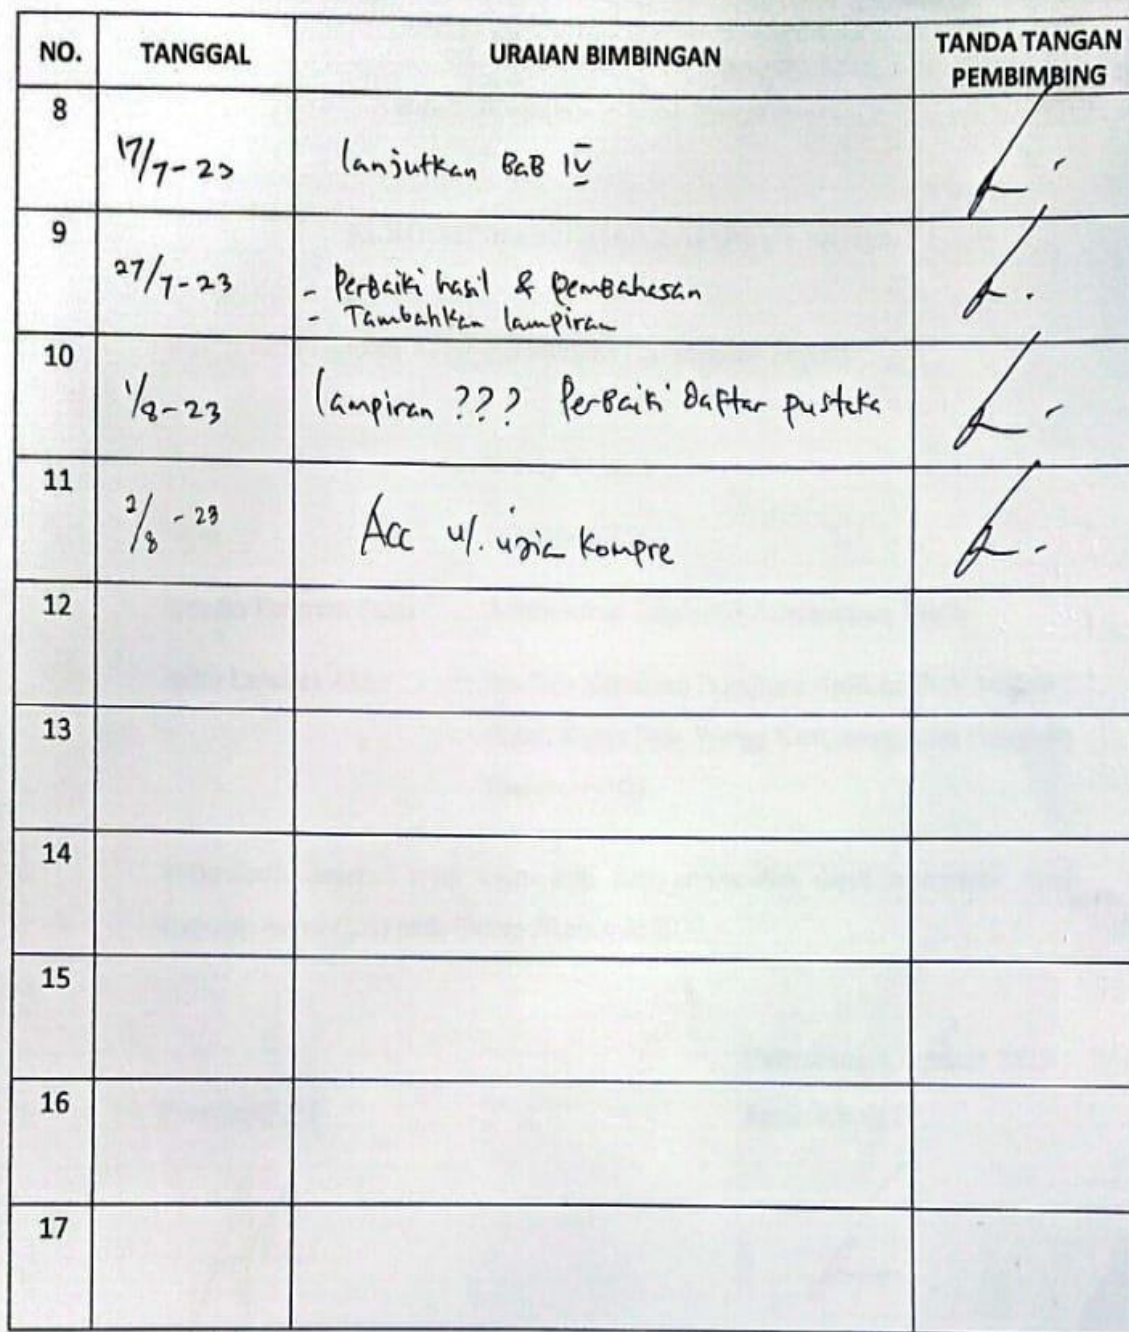 NO. TANGGAL URAIAN BIMBINGAN TANDA TANGAN PEMBIMBING
8
17/7-23 lanjutkan BaB IV
9
27/7-23 - Perbaiki hasil & Pembahasan
- Tambahkan lampiran
10
1/8-23 lampiran ??? Perbaiki daftar pustaka
11
2/8-23 Acc u/. ujia Kompre
12
13
14
15
16
17